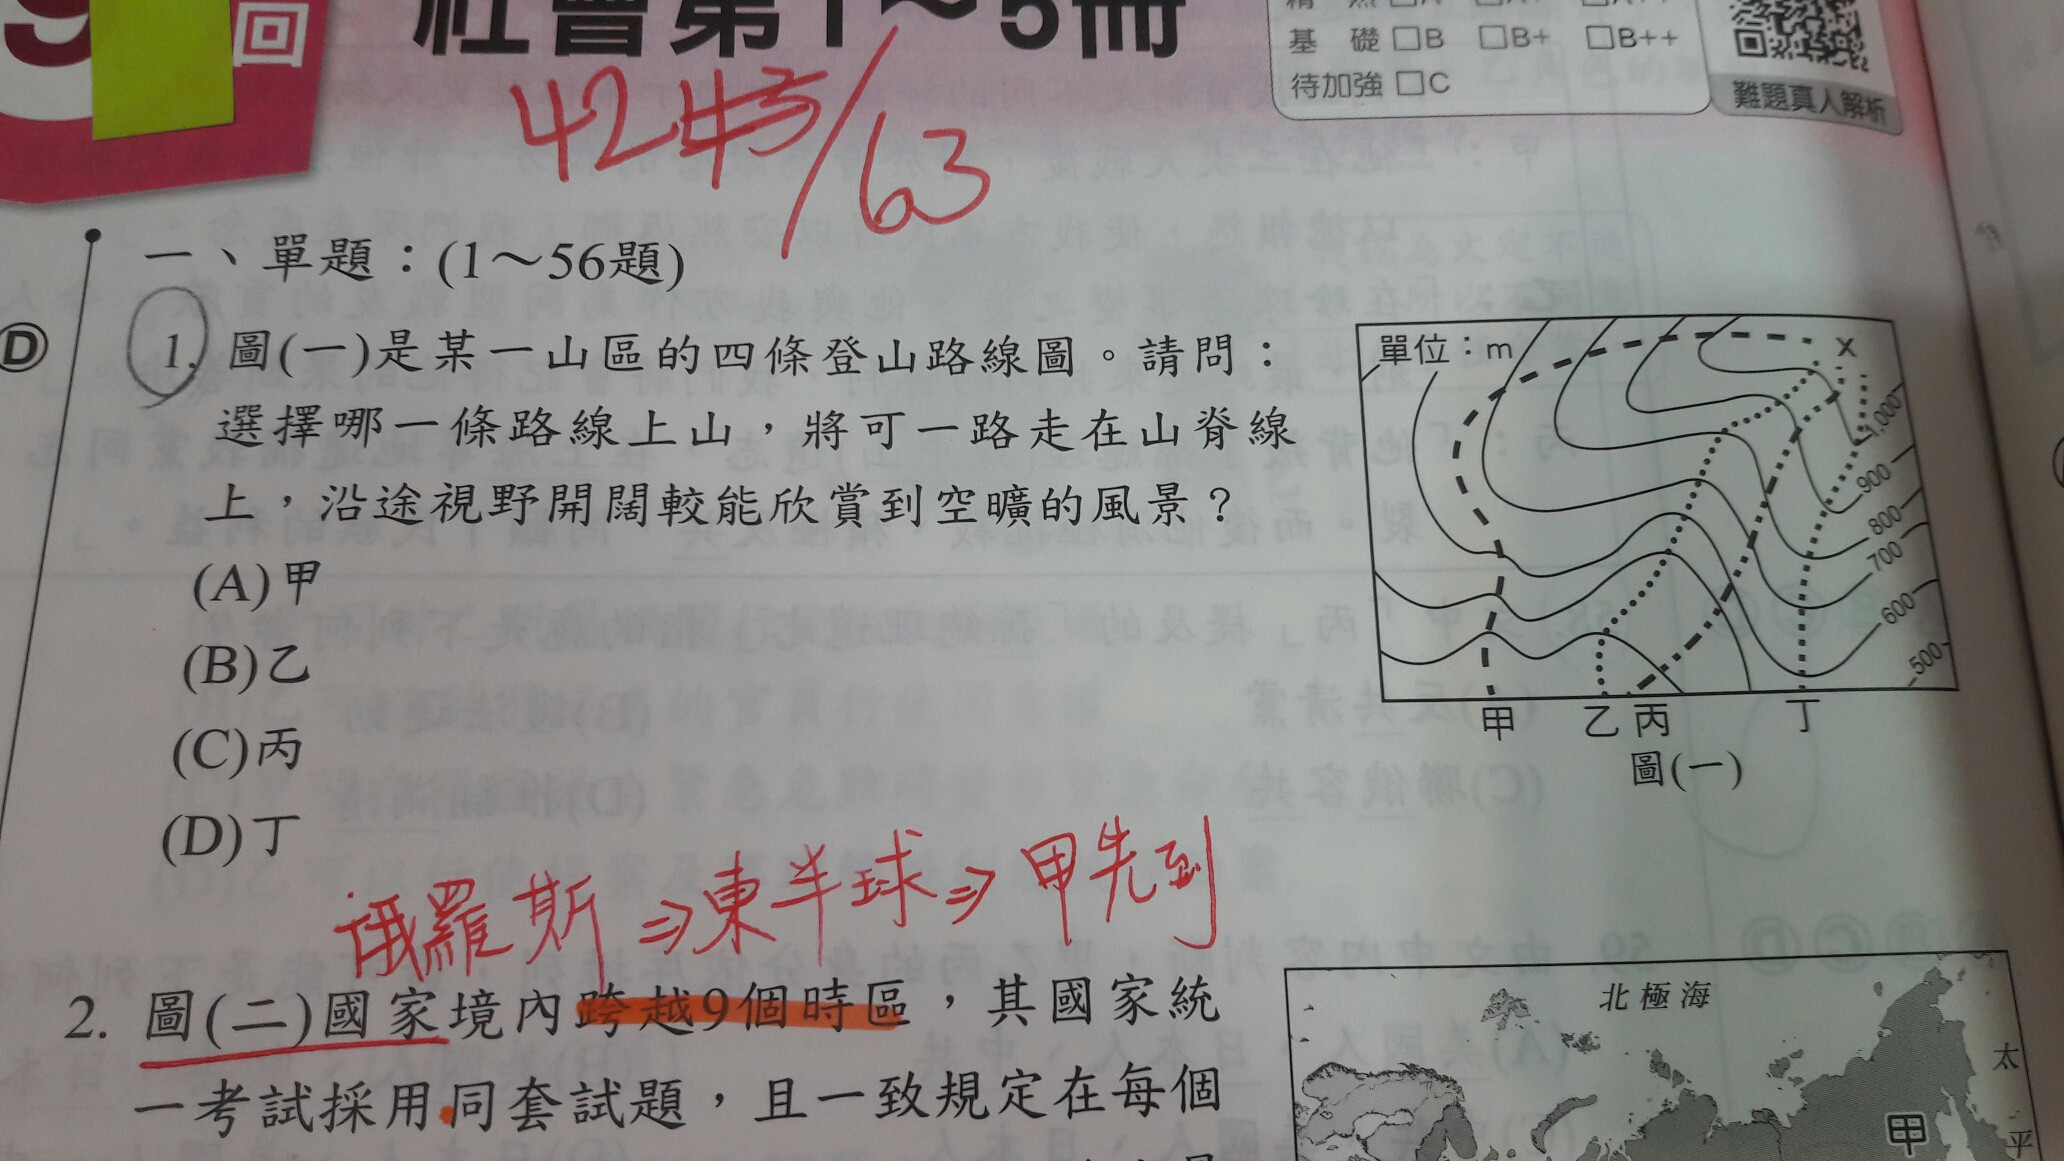 回
社會第1～5冊
基 礎 □B □B+ □B++
待加強 □C
難題真人解析
42 43/63
一、單題：(1～56題)
D
1. 圖(一)是某一山區的四條登山路線圖。請問：
選擇哪一條路線上山，將可一路走在山脊線
上，沿途視野開闊較能欣賞到空曠的風景？
(A)甲
(B)乙
(C)丙
(D)丁
單位：m
x
1,000
900
800
700
600
500
甲 乙 丙 丁
圖(一)
俄羅斯⇒東半球⇒甲先到
2. 圖(二)國家境內跨越9個時區，其國家統
一考試採用同套試題，且一致規定在每個
北極海
太
平
甲